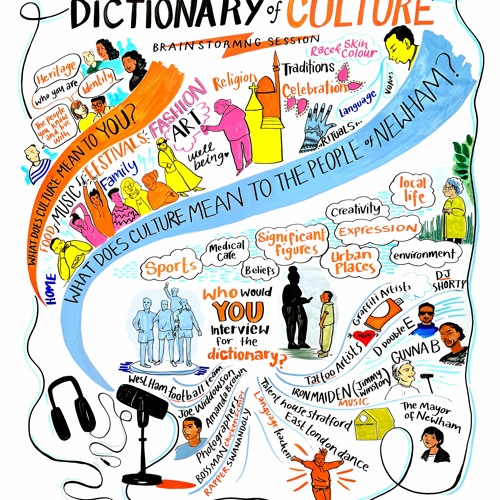 DICTIONARY of CULTURE
BRAINSTORMNG SESSION
Heritage
who you are
Identity
The people you know and live with
WHAT DOES CULTURE MEAN TO YOU?
HOME
FOOD
MUSIC
FESTIVALS
Family
FASHION
ART
well being
Religion
Traditions
Celebration
Race & Skin Colour
Language
Values
RITUALS
WHAT DOES CULTURE MEAN TO THE PEOPLE of NEWHAM?
local life
Creativity
EXPRESSION
Significant figures
Medical care
Sports
Beliefs
Urban Places
environment
WHO would
YOU
interview
for the
dictionary?
West Ham football team
Joe Widdowson
Amanda Brown
Photographers
BOSSMAN
RAPPER SWANANDOLY
Graffiti Artists
DJ SHORTY
MUM
Tattoo Artists
D Double E
GUVNA B
IRON MAIDEN (Jimmy Winston)
MUSIC
Talent house stratford
The Mayor of Newham
East London dance
Language teacher